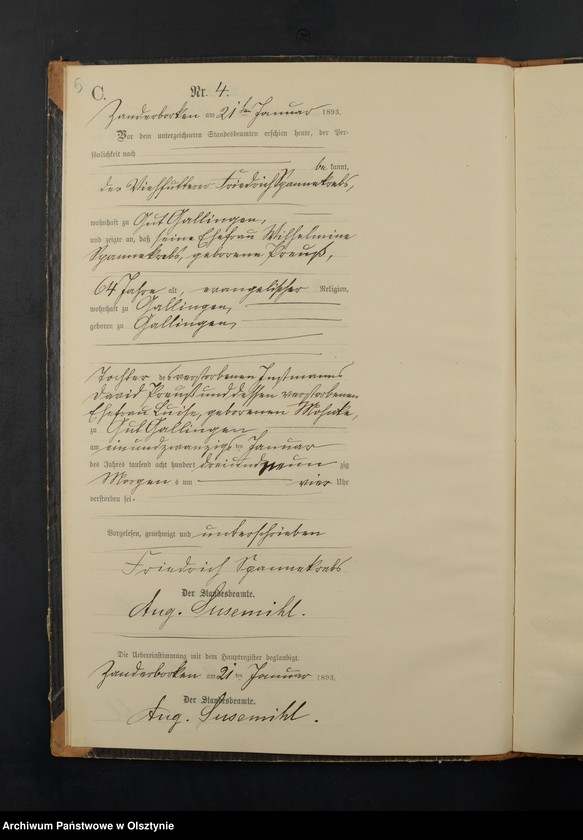 5
C.
Nr. 4.
Zanderborken am 21ten Januar 1893.
Vor dem unterzeichneten Standesbeamten erschien heute, der Per-
sönlichkeit nach
be kannt,
der Viehfütterer Friedrich Spannekrebs,
wohnhaft zu Gut Gallingen,
und zeigte an, daß seine Ehefrau Wilhelmine
Spannekrebs, geborene Preuß,
64 Jahre alt, evangelischer Religion,
wohnhaft zu Gallingen,
geboren zu Gallingen,
Tochter des verstorbenen Instmanns
David Preuß und dessen verstorbenen
Ehefrau Luise, geborenen
zu Gut Gallingen
am einundzwanzigsten Januar
des Jahres tausend acht hundert dreiundneun zig
Morgens um vier Uhr
verstorben sei.
Vorgelesen, genehmigt und unterschrieben
Friedrich Spannekrebs
Der Standesbeamte.
Aug. Susemihl.
Die Uebereinstimmung mit dem Hauptregister beglaubigt.
Zanderborken am 21ten Januar 1893.
Der Standesbeamte.
Aug. Susemihl.
Archiwum Państwowe w Olsztynie